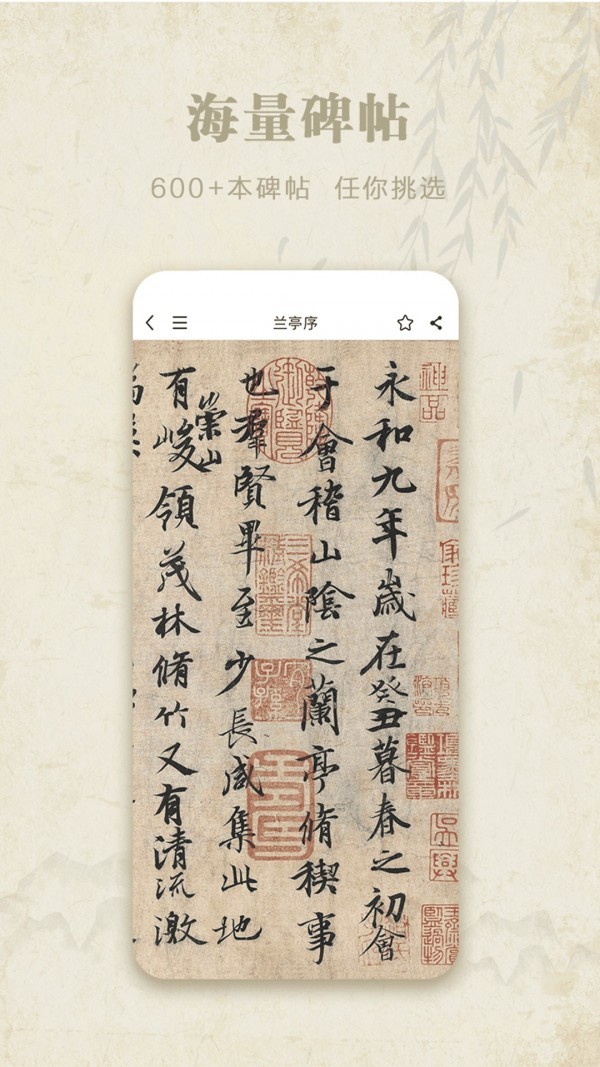 海量碑帖
600+本碑帖 任你挑选
兰亭序
永和九年歲在癸丑暮春之初會
于會稽山陰之蘭亭脩稧事
也羣賢畢至少長咸集此地
有崇山峻領茂林脩竹又有清流激
神品
三希堂
宜子孫